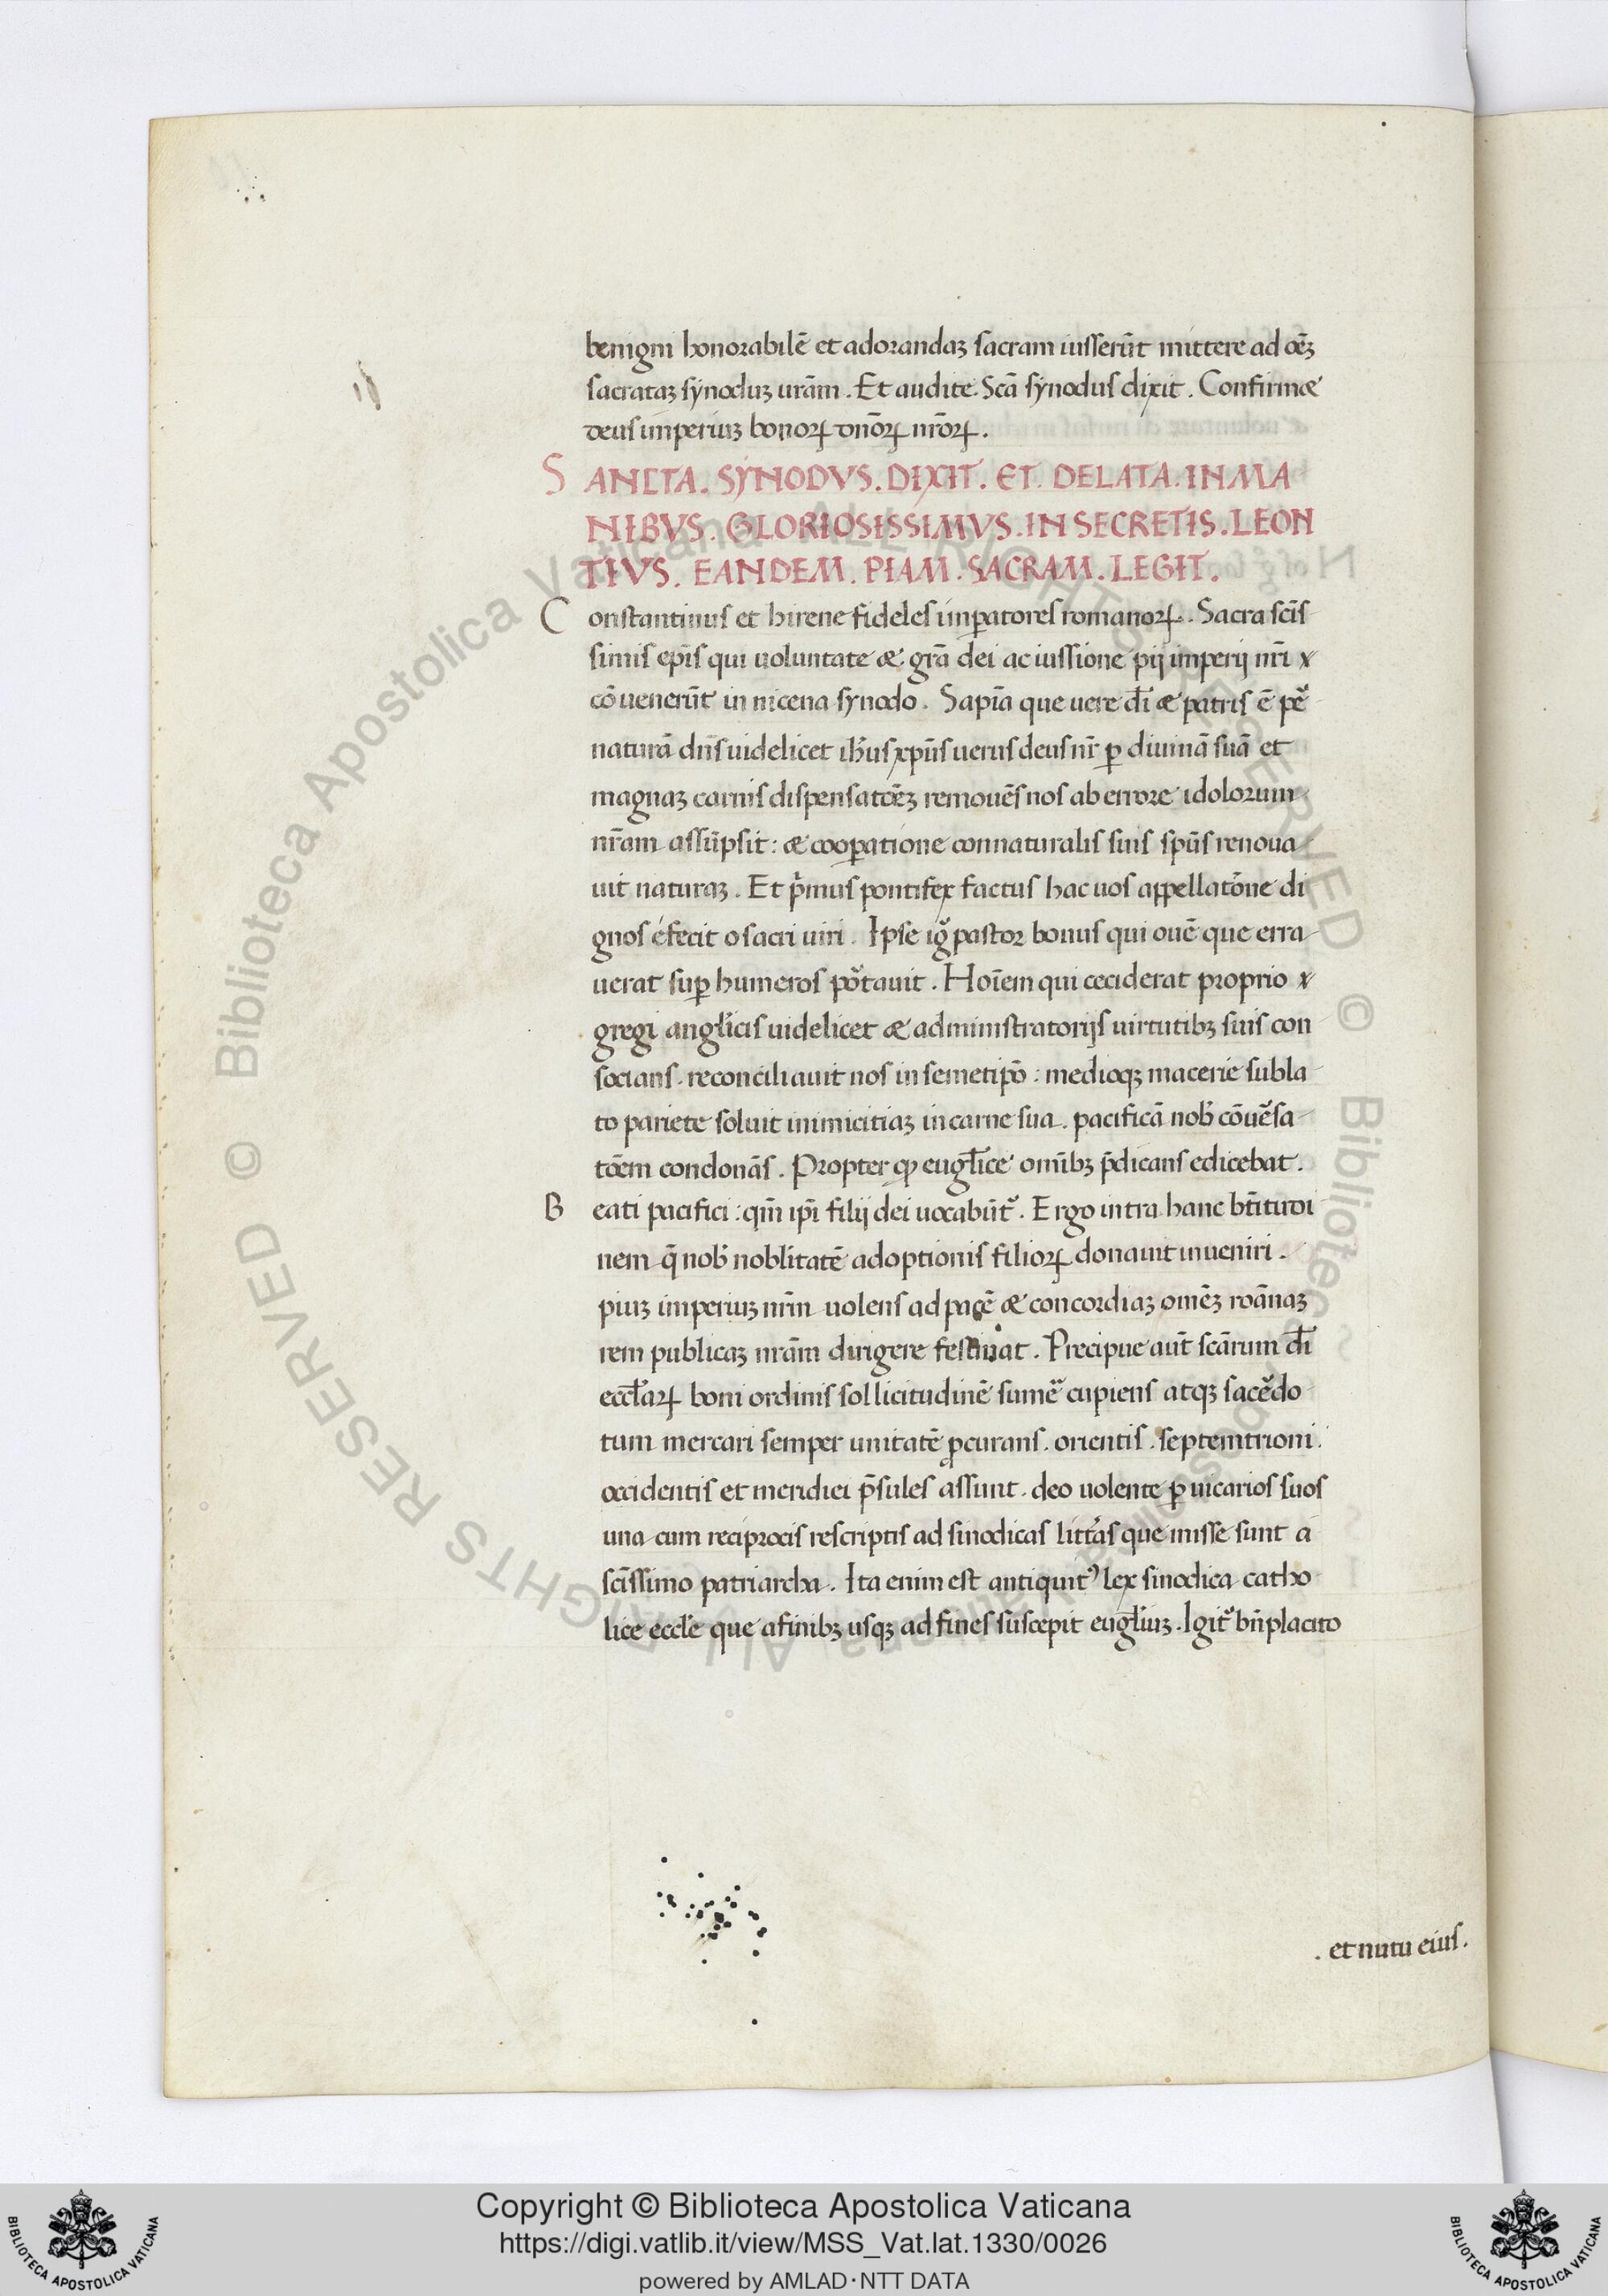 benigni honorabilē et adorandaʒ sacram iusserūt mittere ad oēʒ
sacrataʒ synoduʒ urām . Et audite . Scā synodus dixit . Confirmæ
deus imperiuʒ bonoꝝ dnōꝝ nr̄oꝝ .
S ANCTA . SYNODVS . DIXIT . ET . DELATA . IN MA
NIBVS . GLORIOSISSIMVS . IN SECRETIS . LEON
TIVS . EANDEM . PIAM . SACRAM . LEGIT .
C onstantinus et hirene fideles imꝑatores romanoꝝ . Sacra scīs
simis ep̄is qui uoluntate æ grā dei ac iussione pij imperij nr̄i x
cōuenerūt in nicena synodo . Sapīa que uere dī æ patris ē
naturā dn̄s uidelicet ih̄us xp̄us uerus deus nr̄ ꝑ diuinā suā et
magnaʒ carnis dispensatōēʒ remouēs nos ab errore idolorum
nr̄am assūpsit : æ cooꝑatione connaturalis suis spūs renoua
uit naturaʒ . Et pͥmus pontifex factus hac uos appellatōne di
gnos efecit o sacri uiri . Ipse igͬ pastor bonus qui ouē que erra
uerat suꝑ humeros poͬtauit . Hoīem qui ceciderat proprio x
gregi angl̄icis uidelicet æ administratorijs uirtutibʒ suis con
socians . reconciliauit nos in semetip̄o : medioqʒ macerie subla
to pariete soluit inimicitiaʒ in carne sua . pacificā nob̄ cōuēsa
tōem condonās . Propter qͩ eugl̄ice omībʒ p̄dicans edicebat .
B eati pacifici : qm̄ ip̄i filij dei uocabūtͬ . Ergo intra hanc bt̄itudi
nem q̄ nob̄ nobl̄itatē adoptionis filioꝝ donauit inueniri .
piuʒ imperiuʒ nr̄m uolens ad pacē æ concordiaʒ omēʒ roānaʒ
rem publicaʒ nrām dirigere festinat . Precipue aūt scārum dī
eccl̄aꝝ boni ordinis sollicitudinē sumeͬ cupiens atqʒ saceͬdo
tum mercari semper unitatē ꝓcurans . orientis . septemtrioni .
occidentis et meridiei p̄sules assunt . deo uolente ꝑ uicarios suos
una cum reciprocis rescriptis ad sinodicas litt̄as que misse sunt a
scīssimo patriarcha . Ita enim est antiquitꝰ lex sinodica catho
lice eccl̄e que afinibʒ usqʒ ad fines suscepit eugl̄iuʒ . Igitͬ bn̄placito
. et nutu eius .
© Biblioteca Apostolica Vaticana ALL RIGHTS RESERVED © Biblioteca Apostolica Vaticana ALL RIGHTS RESERVED
Copyright © Biblioteca Apostolica Vaticana
https://digi.vatlib.it/view/MSS_Vat.lat.1330/0026
powered by AMLAD·NTT DATA
BIBLIOTECA APOSTOLICA VATICANA
BIBLIOTECA APOSTOLICA VATICANA